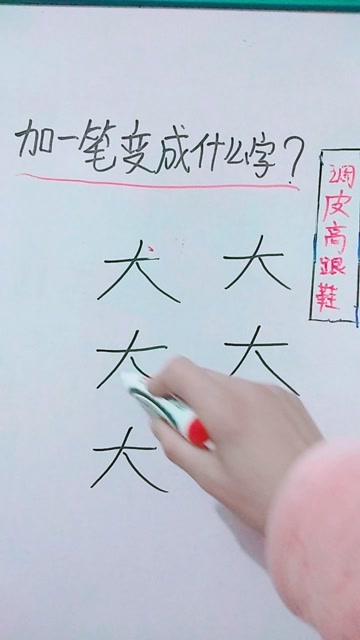 加一笔变成什么字?
调皮高跟鞋
犬 大
大 大
大